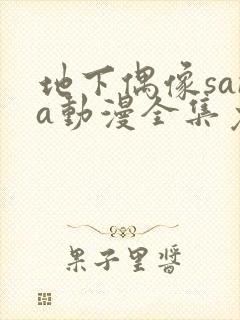 地下偶像sa
a動漫全集
果子里醬